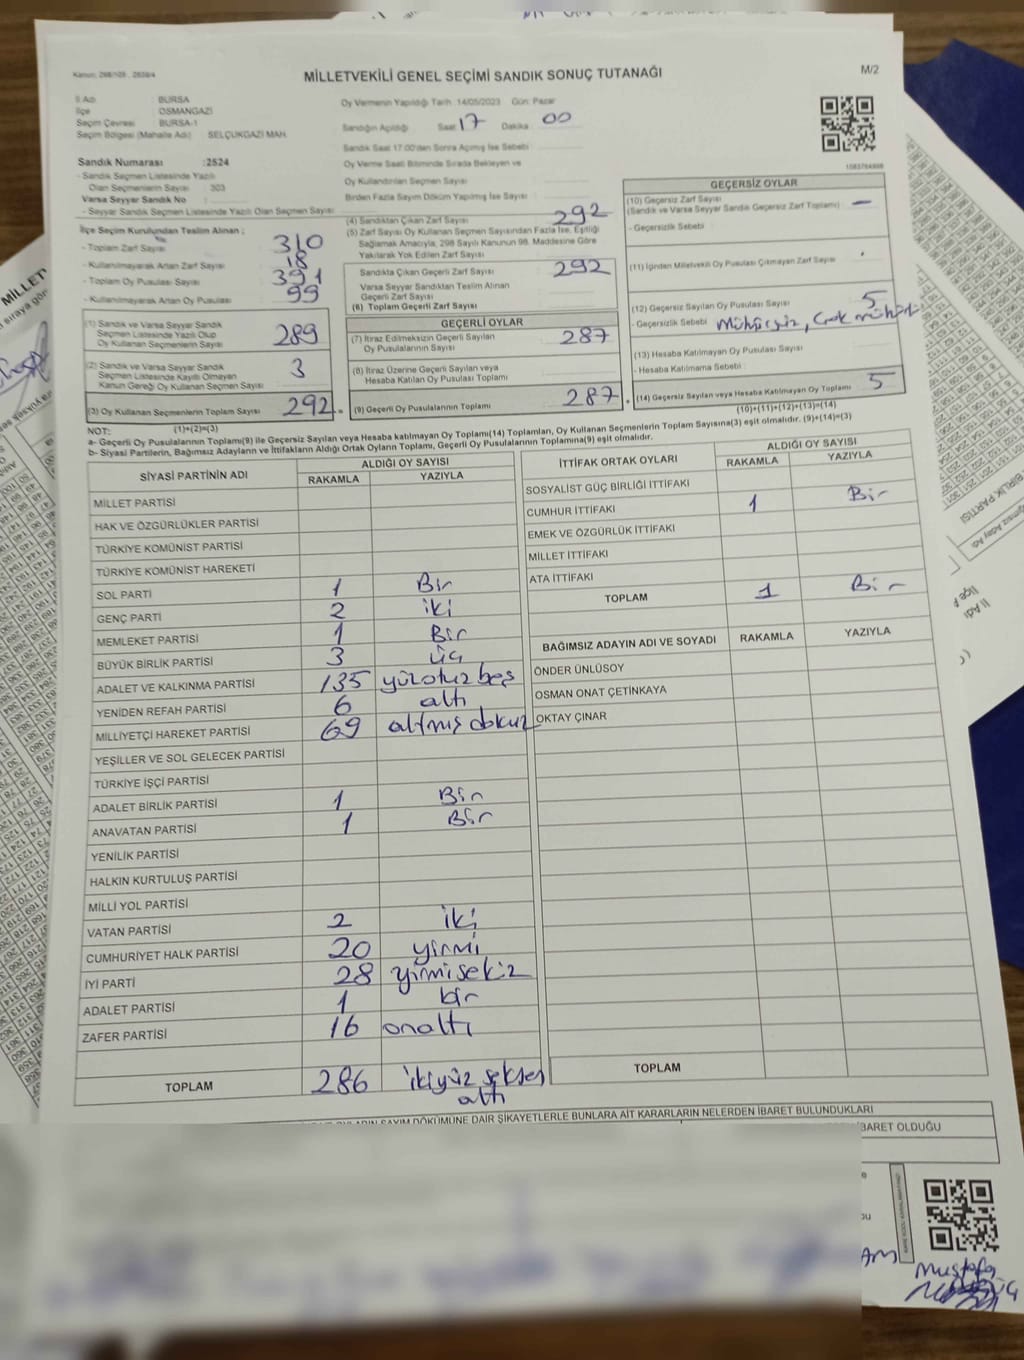 Kanun: 298/105 , 2839/4
MİLLETVEKİLİ GENEL SEÇİMİ SANDIK SONUÇ TUTANAĞI
M/2
İl Adı BURSA
İlçe OSMANGAZİ
Seçim Çevresi BURSA-1
Seçim Bölgesi (Mahalle Adı) SELÇUKGAZİ MAH.
Sandık Numarası :2524
- Sandık Seçmen Listesinde Yazılı
Olan Seçmenlerin Sayısı : 303
Varsa Seyyar Sandık No :
- Seyyar Sandık Seçmen Listesinde Yazılı Olan Seçmen Sayısı
İlçe Seçim Kurulundan Teslim Alınan ;
- Toplam Zarf Sayısı 310
- Kullanılmayarak Artan Zarf Sayısı 18
- Toplam Oy Pusulası Sayısı 391
- Kullanılmayarak Artan Oy Pusulası 99
(1) Sandık ve Varsa Seyyar Sandık
Seçmen Listesinde Yazılı Olup
Oy Kullanan Seçmenlerin Sayısı 289
(2) Sandık ve Varsa Seyyar Sandık
Seçmen Listesinde Kayıtlı Olmayan
Kanun Gereği Oy Kullanan Seçmen Sayısı 3
(3) Oy Kullanan Seçmenlerin Toplam Sayısı 292 =
Oy Vermenin Yapıldığı Tarih :14/05/2023 Gün: Pazar
Sandığın Açıldığı Saat 17 Dakika 00
Sandık Saat 17:00'den Sonra Açılmış İse Sebebi :
Oy Verme Saati Bitiminde Sırada Bekleyen ve
Oy Kullandırılan Seçmen Sayısı :
Birden Fazla Sayım Döküm Yapılmış İse Sayısı :
(4) Sandıktan Çıkan Zarf Sayısı 292
(5) Zarf Sayısı Oy Kullanan Seçmen Sayısından Fazla İse, Eşitliği
Sağlamak Amacıyla, 298 Sayılı Kanunun 98. Maddesine Göre
Yakılarak Yok Edilen Zarf Sayısı
Sandıkta Çıkan Geçerli Zarf Sayısı 292
Varsa Seyyar Sandıktan Teslim Alınan
Geçerli Zarf Sayısı
(6) Toplam Geçerli Zarf Sayısı
GEÇERLİ OYLAR
(7) İtiraz Edilmeksizin Geçerli Sayılan
Oy Pusulalarının Sayısı 287
(8) İtiraz Üzerine Geçerli Sayılan veya
Hesaba Katılan Oy Pusulası Toplamı
(9) Geçerli Oy Pusulalarının Toplamı 287 +
1083764808
GEÇERSİZ OYLAR
(10) Geçersiz Zarf Sayısı
(Sandık ve Varsa Seyyar Sandık Geçersiz Zarf Toplamı) —
- Geçersizlik Sebebi
(11) İçinden Milletvekili Oy Pusulası Çıkmayan Zarf Sayısı
(12) Geçersiz Sayılan Oy Pusulası Sayısı 5
- Geçersizlik Sebebi Mühürsüz, Çok mühür
(13) Hesaba Katılmayan Oy Pusulası Sayısı
- Hesaba Katılmama Sebebi :
(14) Geçersiz Sayılan veya Hesaba Katılmayan Oy Toplamı 5
(10)+(11)+(12)+(13)=(14)
NOT: (1)+(2)=(3)
a- Geçerli Oy Pusulalarının Toplamı(9) ile Geçersiz Sayılan veya Hesaba katılmayan Oy Toplamı(14) Toplamları, Oy Kullanan Seçmenlerin Toplam Sayısına(3) eşit olmalıdır. (9)+(14)=(3)
b- Siyasi Partilerin, Bağımsız Adayların ve İttifakların Aldığı Ortak Oyların Toplamı, Geçerli Oy Pusulalarının Toplamına(9) eşit olmalıdır.
SİYASİ PARTİNİN ADI ALDIĞI OY SAYISI
RAKAMLA YAZIYLA
MİLLET PARTİSİ
HAK VE ÖZGÜRLÜKLER PARTİSİ
TÜRKİYE KOMÜNİST PARTİSİ
TÜRKİYE KOMÜNİST HAREKETİ
SOL PARTİ 1 Bir
GENÇ PARTİ 2 iki
MEMLEKET PARTİSİ 1 Bir
BÜYÜK BİRLİK PARTİSİ 3 üç
ADALET VE KALKINMA PARTİSİ 135 yüzotuz beş
YENİDEN REFAH PARTİSİ 6 altı
MİLLİYETÇİ HAREKET PARTİSİ 69 altmış dokuz
YEŞİLLER VE SOL GELECEK PARTİSİ
TÜRKİYE İŞÇİ PARTİSİ
ADALET BİRLİK PARTİSİ 1 Bir
ANAVATAN PARTİSİ 1 Bir
YENİLİK PARTİSİ
HALKIN KURTULUŞ PARTİSİ
MİLLİ YOL PARTİSİ
VATAN PARTİSİ 2 iki
CUMHURİYET HALK PARTİSİ 20 yirmi
İYİ PARTİ 28 yirmisekiz
ADALET PARTİSİ 1 bir
ZAFER PARTİSİ 16 onaltı
TOPLAM 286 ikiyüz seksen
altı
İTTİFAK ORTAK OYLARI ALDIĞI OY SAYISI
RAKAMLA YAZIYLA
SOSYALİST GÜÇ BİRLİĞİ İTTİFAKI
CUMHUR İTTİFAKI 1 Bir
EMEK VE ÖZGÜRLÜK İTTİFAKI
MİLLET İTTİFAKI
ATA İTTİFAKI
TOPLAM 1 Bir
BAĞIMSIZ ADAYIN ADI VE SOYADI RAKAMLA YAZIYLA
ÖNDER ÜNLÜSOY
OSMAN ONAT ÇETİNKAYA
OKTAY ÇINAR
TOPLAM
SAYIM DÖKÜMÜNE DAİR ŞİKAYETLERLE BUNLARA AİT KARARLARIN NELERDEN İBARET BULUNDUKLARI
İBARET OLDUĞU
Mustafa